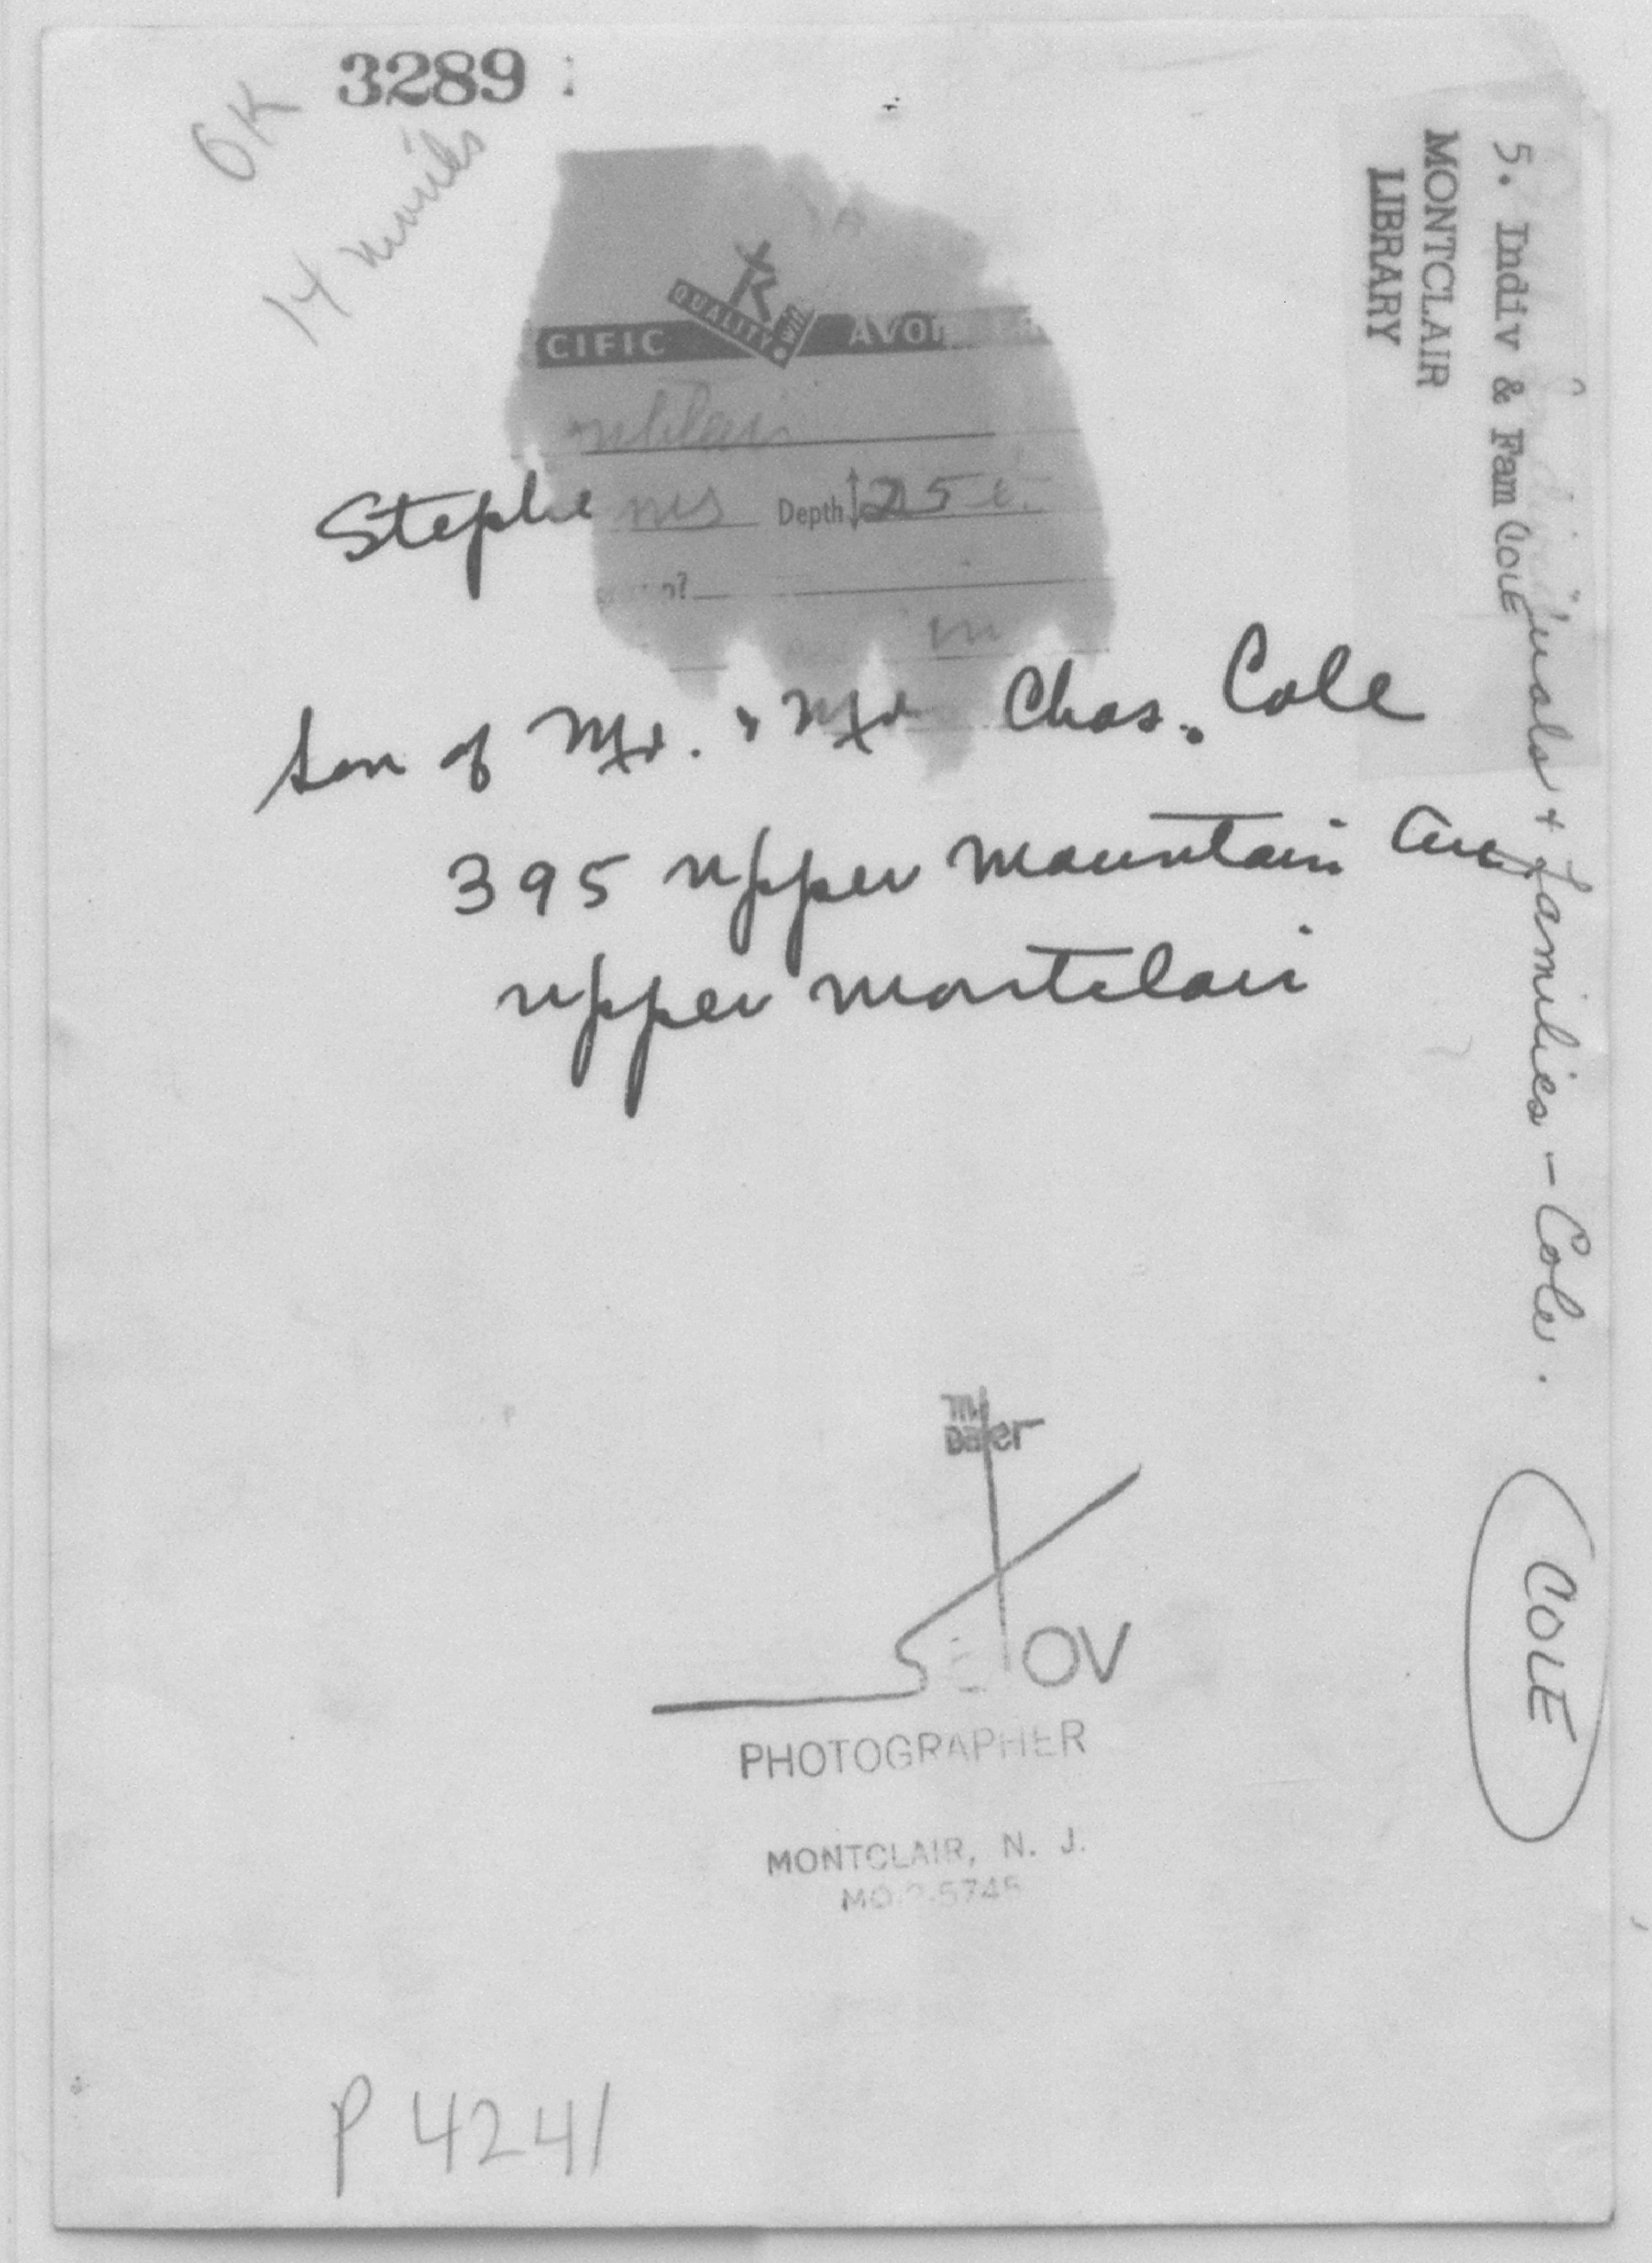 3289
OK
14 months
CIFIC
QUALITY
AVO
Stephe
Depth 25
m
son of Mr. & Mrs Chas. Cole
395 upper mountain ave
upper montclair
5. Indiv & Fam COLE
MONTCLAIR
LIBRARY
families - Cole.
COLE
OV
PHOTOGRAPHER
MONTCLAIR, N. J.
P 4241